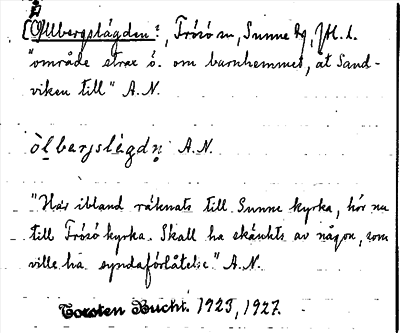 [Ållbergslägden?, Frösö sn, Sunne tg, Jtl. l.
"område strax ö. om barnhemmet, åt Sand-
viken till" A.N.
òlbærjslégdn̥ A.N.
"Har ibland räknats till Sunne kyrka, hör nu
till Frösö kyrka. Skall ha skänkts av någon, som
ville ha syndaförlåtelse" A.N.
Torsten Bucht. 1925, 1927.